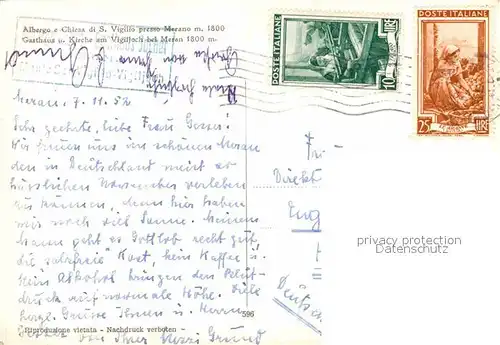 Albergo e Chiesa di S. Vigilio presso Merano m. 1800
Gasthaus u. Kirche am Vigiljoch bei Meran 1800 m.
POSTE ITALIANE
LIRE
10
POSTE ITALIANE
25 LIRE
Meran, 7.11.52
Sehr geehrte, liebe Frau
Wir freuen uns im schönen Meran
den in Deutschland meist so
hässlichen November verleben
zu können, denn hier haben
wir noch viel Sonne. Meinem
Mann geht es Gottlob recht gut,
die "salzfreie" Kost, kein Kaffee u.
kein Alkohol bringen den Blut-
druck auf normale Höhe. Viele
herzl. Grüsse Ihnen u. Herrn
von Ihrer Grund
Direkt
Eng
Deutsch
privacy protection
www.delcampe.net
596
Riproduzione vietata - Nachdruck verboten